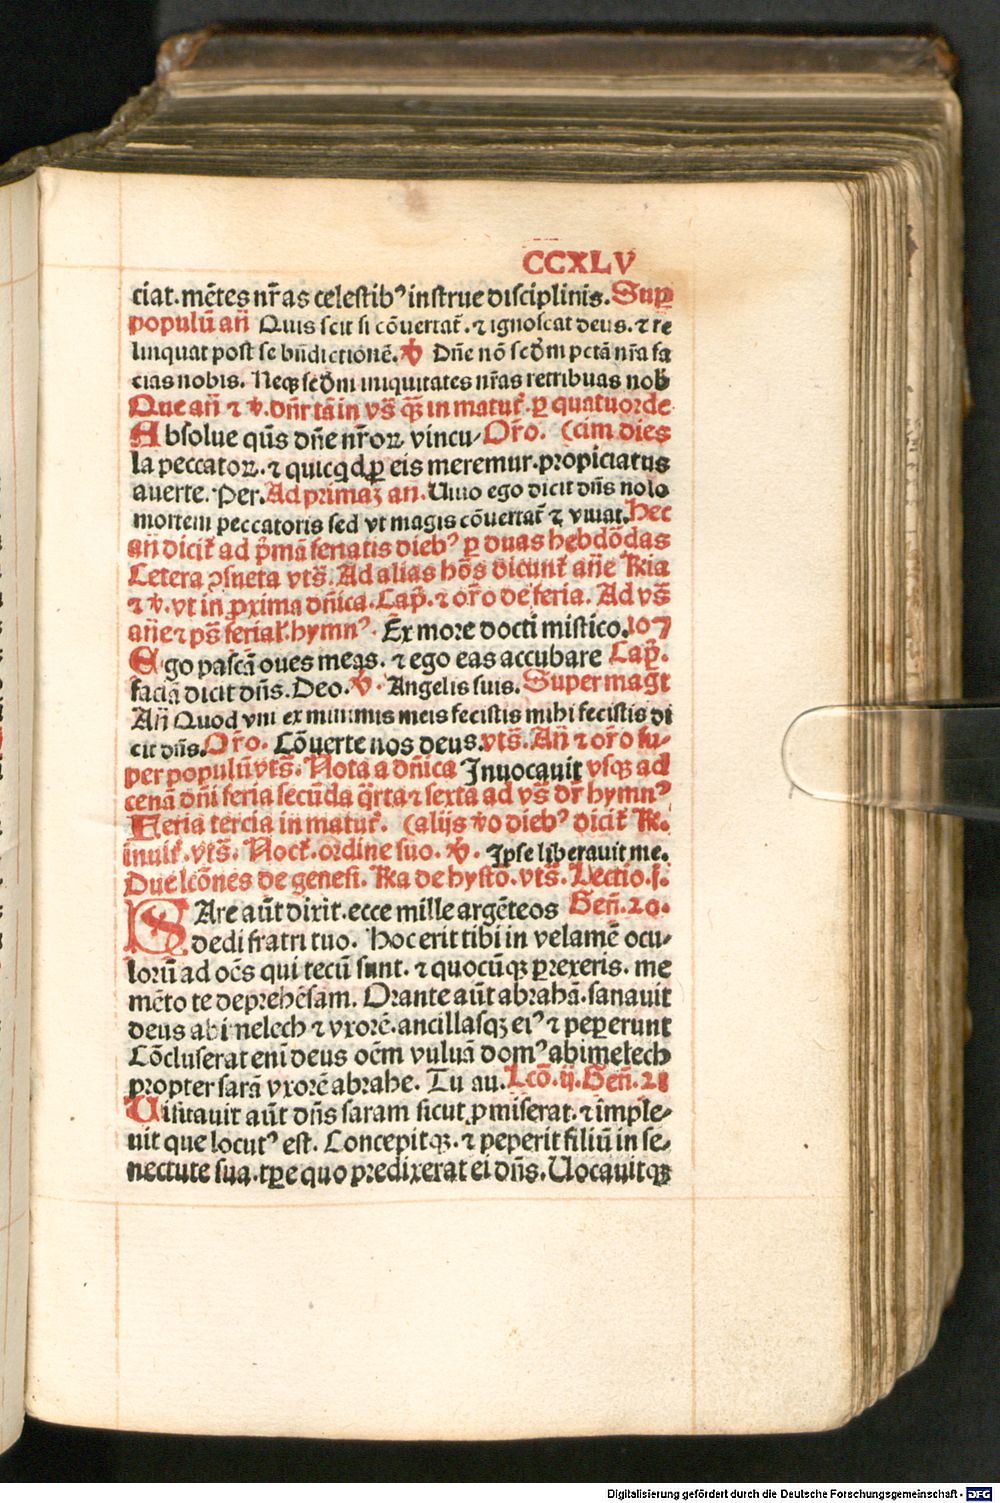 CCXLV
ciat. mētes nr̄as celestibꝰ instrue disciplinis. Suꝑ
populū an̄ Quis scit si cōuertat̄. ⁊ ignoscat deus. ⁊ re
linquat post se bn̄dictionē. ℣ Dn̄e nō scd̄m pctā nr̄a fa
cias nobis. Neqꝫ scd̄m iniquitates nr̄as retribuas nob̄
Que an̄ ⁊ ℣. dn̄r tā in vs̄ qꝫ̄ in matut̄. ꝑ quatuorde
Absolue qūs dn̄e nr̄oꝝ vincu⸗ Or̄o. (cim dies
la peccatoꝝ. ⁊ quicq̄d ꝓ eis meremur. propiciatus
auerte. Per. Ad primaꝫ an̄. Uiuo ego dicit dn̄s nolo
mortem peccatoris sed vt magis cōuertat̄ ⁊ viuat. Hec
an̄ dicit̄ ad p̄mā feriatis diebꝰ ꝑ duas hebdōdas
Cetera ꝯsueta vts̄. Ad alias hōs dicunt̄ an̄e R̄ia
⁊ ℣. vt in ꝓxima dn̄ica. Cap̄. ⁊ or̄o de feria. Ad vs̄
an̄e ⁊ ps̄ ferial̄. hymnꝰ. Ex more docti mistico. 107
Ego pascā oues meas. ⁊ ego eas accubare Cap̄.
faciā dicit dn̄s. Deo. ℣. Angelis suis. Super magt̄
An̄ Quod vni ex minimis meis fecistis mihi fecistis di
cit dn̄s. Or̄o. Cōuerte nos deus. vts̄. An̄ ⁊ or̄o su⸗
per populū vts̄. Nota a dn̄ica Inuocauit vsqꝫ ad
cenā dn̄i feria secūda q̄rta ⁊ sexta ad vs̄ dr̄ hymnꝰ
Feria tercia in matut̄. (alijs v̄o diebꝰ dicit̄ R̄.
inuit̄. vts̄. Noct̄. ordine suo. ℣. Ipse liberauit me.
Due lcōnes de genesi. R̄ia de hysto. vts̄. Lectio. j.
SAre aūt dixit. ecce mille argēteos Gen̄. 20.
dedi fratri tuo. Hoc erit tibi in velamē ocu⸗
lorū ad oēs qui tecū sunt. ⁊ quocūqꝫ ꝑrexeris. me
mēto te deprehēsam. Orante aūt abrahā. sanauit
deus abimelech ⁊ vxorē. ancillasqꝫ eiꝰ ⁊ peꝑerunt
Cōcluserat enī deus oēm vuluā domꝰ abimelech
propter sarā vxorē abrahe. Tu au. Lcō. ij. Gen̄. 21
Uisitauit aūt dn̄s saram sicut ꝓmiserat. ⁊ imple⸗
uit que locutꝰ est. Concepitqꝫ. ⁊ peperit filiū in se⸗
nectute sua. tꝑe quo predixerat ei dn̄s. Uocauitqꝫ
Digitalisierung gefördert durch die Deutsche Forschungsgemeinschaft - DFG